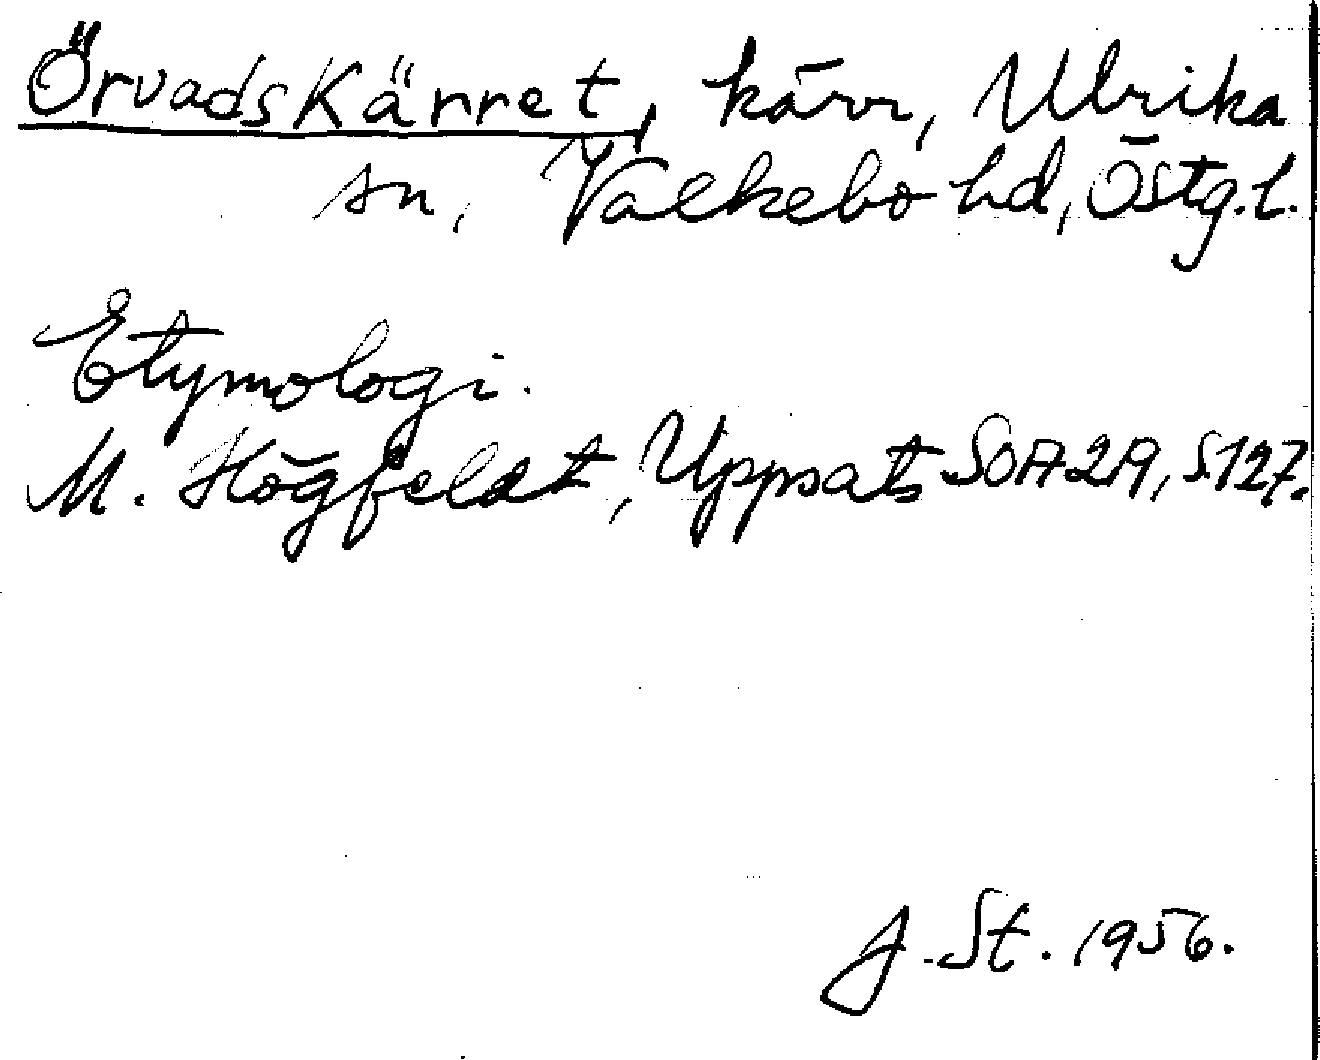 Örvadskärret, kärr, Ulrika
sn, Valkebo hd, Östg.l.
Etymologi.
M. Högfeldt, Uppsats SOA 2A, S.127.
J. St. 1956.